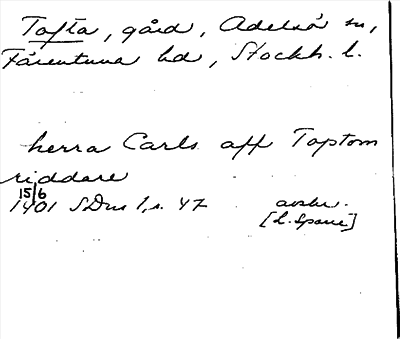 Tofta, gård, Adelsö sn,
Färentuna hd, Stockh. l.
herra Carls aff Toptom
riddare
15/6
1401 SDns 1, s. 47 avskr.
[L. Sparre]